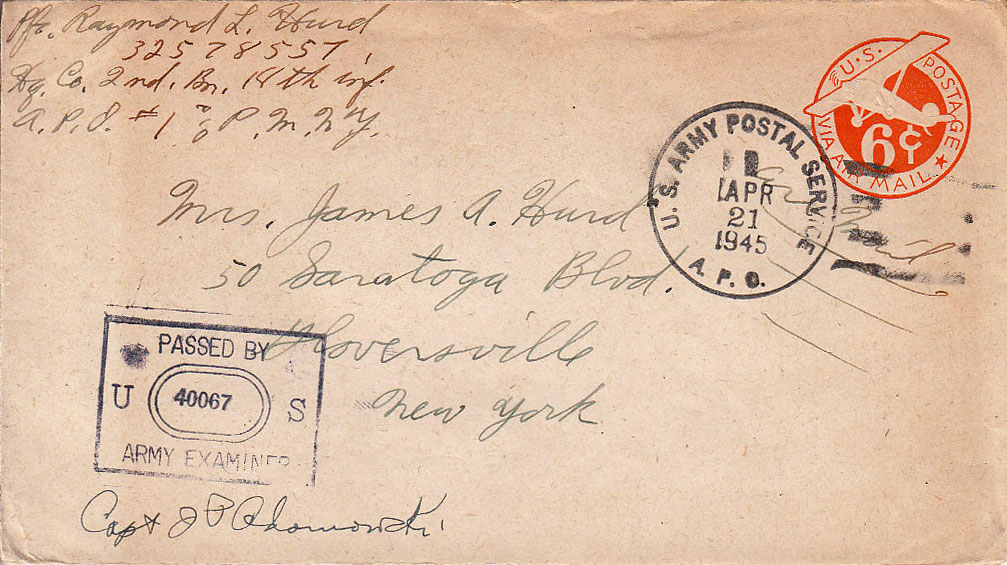 Pfc. Raymond L. Hurd
32578557,
Hq. Co. 2nd. Bn. 18th inf.
A.P.O. #1 % P.M. N.Y.
U.S. POSTAGE
6¢
VIA AIR MAIL
U.S. ARMY POSTAL SERVICE
APR
21
1945
A. P. O.
Air Mail
Mrs. James A. Hurd
50 Saratoga Blvd.
Gloversville
New York
PASSED BY
U 40067 S
ARMY EXAMINER
Capt J P